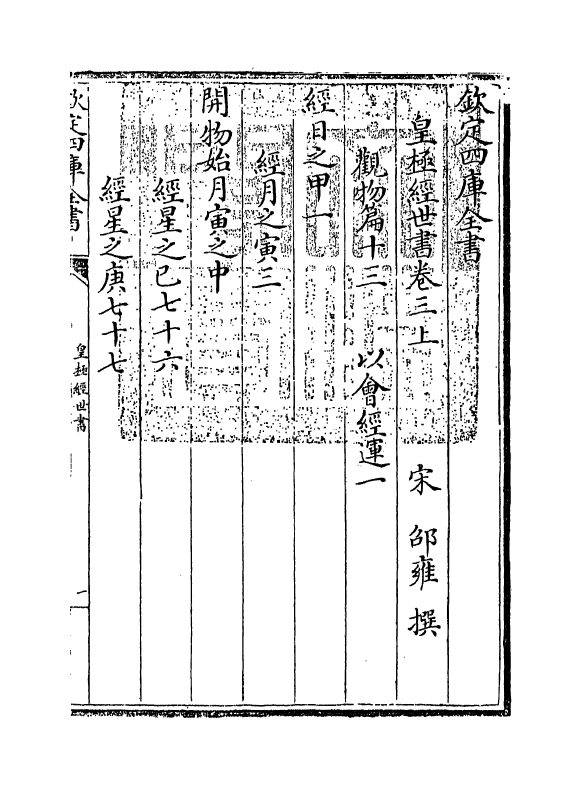 欽定四庫全書
皇極經世書卷三上
宋 邵雍 撰
觀物篇十三 以會經運一
經日之甲一
經月之寅三
開物始月寅之中
經星之己七十六
經星之庚七十七
欽定四庫全書
皇極經世書
一